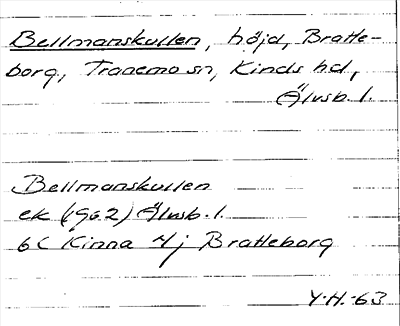 Bellmanskullen, höjd, Bratte-
borg, Tranemo sn, Kinds hd,
Älvsb. l.
Bellmanskullen
ek (1962) Älvsb. l.
6C Kinna 4j Bratteborg
Y.H.-63